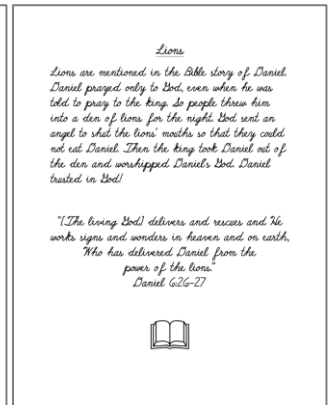 Lions
Lions are mentioned in the Bible story of Daniel.
Daniel prayed only to God, even when he was
told to pray to the king. So people threw him
into a den of lions for the night. God sent an
angel to shut the lions' mouths so that they could
not eat Daniel. Then the king took Daniel out of
the den and worshipped Daniel's God. Daniel
trusted in God!
"[The living God] delivers and rescues and He
works signs and wonders in heaven and on earth,
Who has delivered Daniel from the
power of the lions."
Daniel 6:26-27